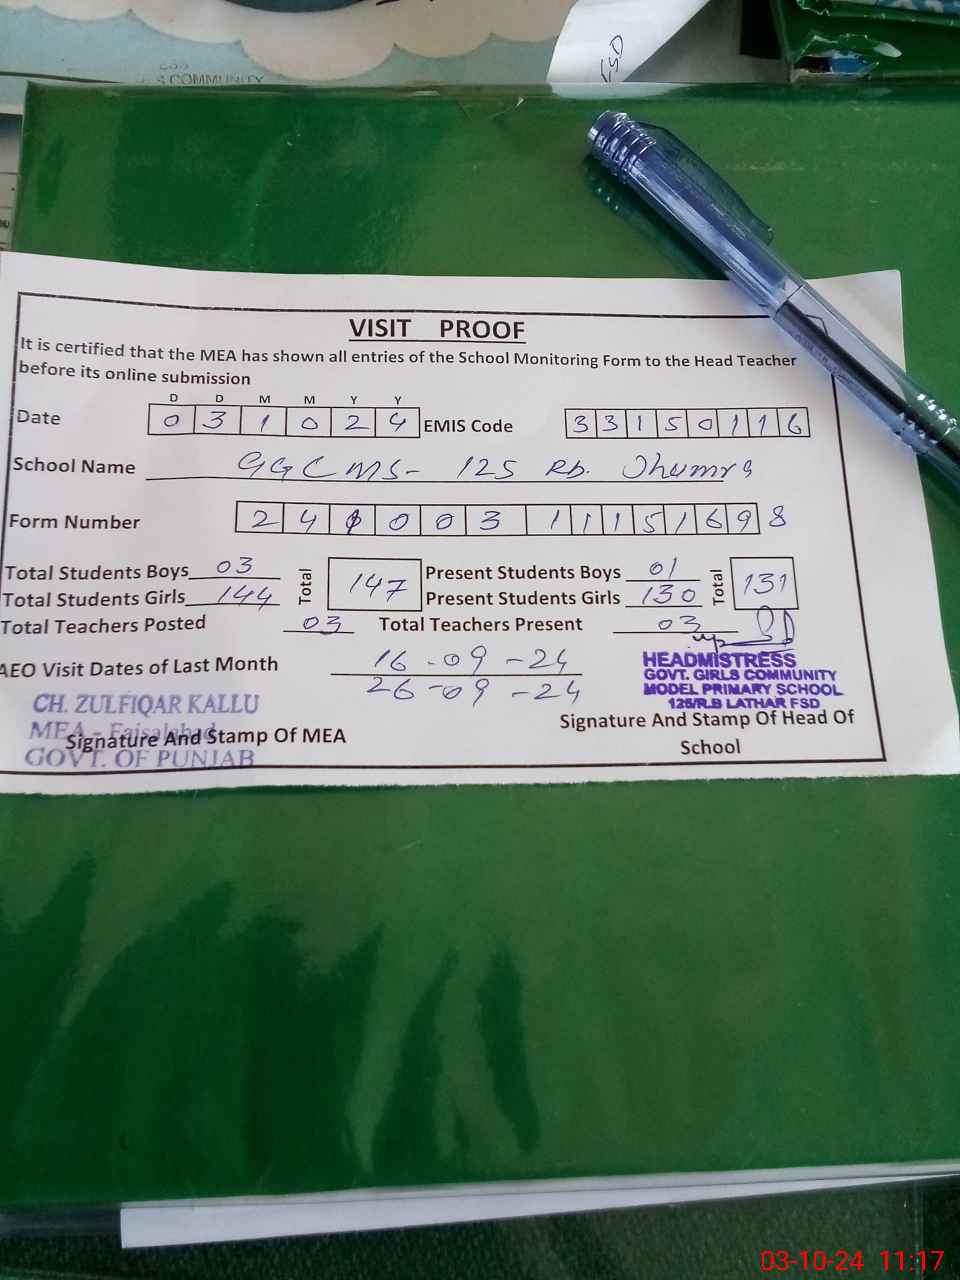 S COMMUNITY
FSD
VISIT PROOF
It is certified that the MEA has shown all entries of the School Monitoring Form to the Head Teacher
before its online submission
D D M M Y Y
Date 0 3 1 0 2 4 EMIS Code 3 3 1 5 0 1 1 6
School Name GGCMS- 125 RB. Jhumra
Form Number 2 4 1 0 0 3 1 1 1 5 1 6 9 8
Total Students Boys 03 Total 147 Present Students Boys 01 Total 131
Total Students Girls 144 Present Students Girls 130
Total Teachers Posted 03 Total Teachers Present 03
AEO Visit Dates of Last Month 16-09-24
26-09-24
HEADMISTRESS
GOVT. GIRLS COMMUNITY
MODEL PRIMARY SCHOOL
125/R.B LATHAR FSD
CH. ZULFIQAR KALLU
MEA - Faisalabad
GOVT. OF PUNJAB
Signature And Stamp Of MEA
Signature And Stamp Of Head Of
School
03-10-24 11:17